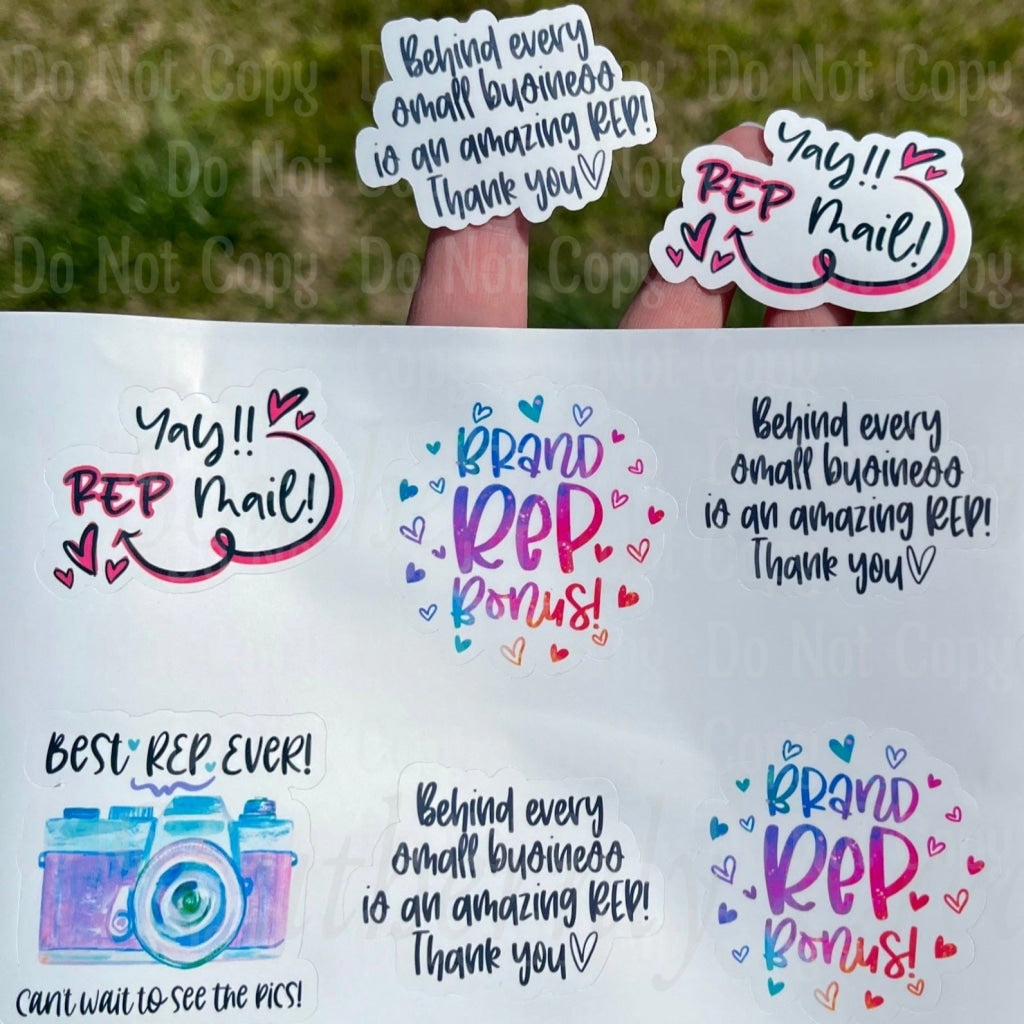 Behind every
small business
is an amazing REP!
Thank you
Yay!!
REP Mail!
Do Not Copy Do Not Copy Do Not Copy
Do Not
Do Not Copy Do Not Copy Do Not Copy
Yay!!
REP Mail!
BRAND
REP
BONUS!
Behind every
small business
is an amazing REP!
Thank you
BEST REP EVER!
CAN'T WAIT TO SEE THE PICS!
Behind every
small business
is an amazing REP!
Thank you
BRAND
REP
BONUS!